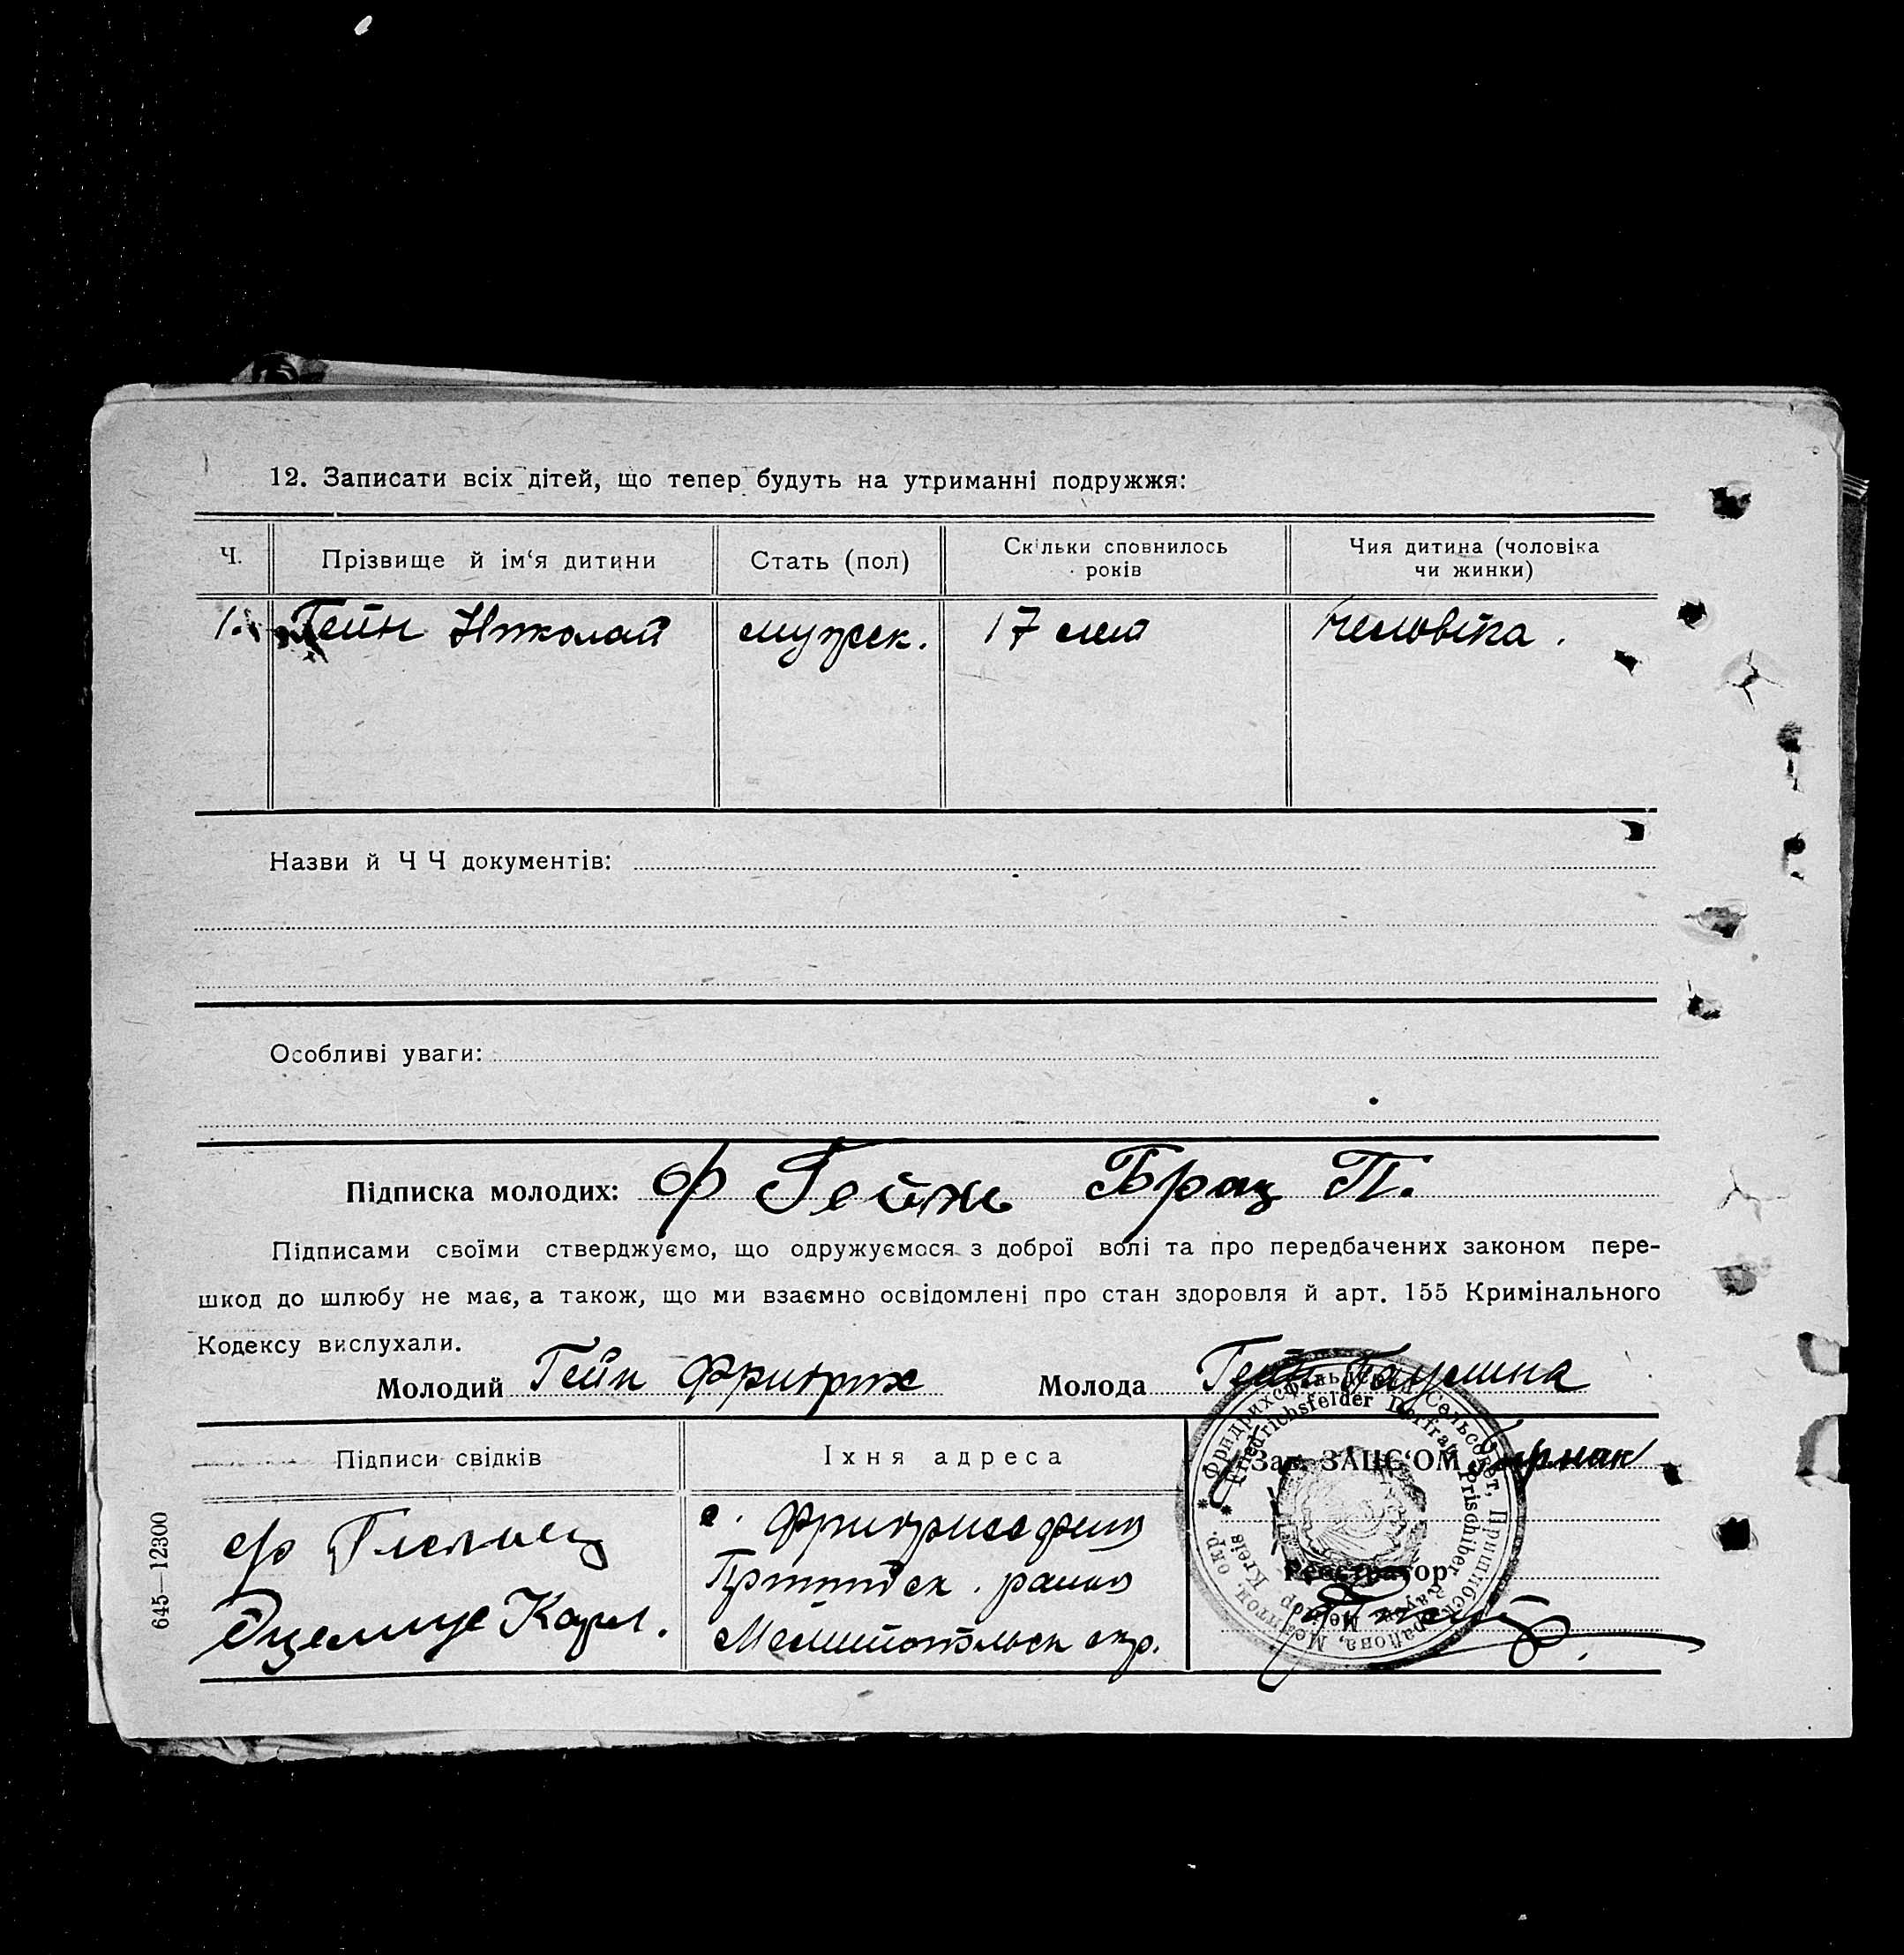 12. Записати всіх дітей, що тепер будуть на утриманні подружжя:
Ч. Прізвище й ім‘я дитини Стать (пол) Скільки сповнилось років Чия дитина (чоловіка чи жинки)
1. Гейн Николай мужск. 17 лет Человіка.
Назви й Ч Ч документів:
Особливі уваги:
Підписка молодих: Ф Гейн Брац П.
Підписами своїми стверджуємо, що одружуємося з доброї волі та про передбачених законом пере-
шкод до шлюбу не має, а також, що ми взаємно освідомлені про стан здоровля й арт. 155 Кримінального
Кодексу вислухали.
Молодий Гейн Фридрих Молода Гейн Паулина
Підписи свідків Їхня адреса Зав. ЗАЦС‘ОМ
с. Фридрихсфельд
Пришибск. район
Мелитопольск окр.
Карл.
Реєстратор
Фридрихсфельдский Сельсовет, Пришибск. района, Мелитоп. окр.
Friedrichsfelder Dorfrat, Prischiber Rayon, Melitop Kreis
645—12300